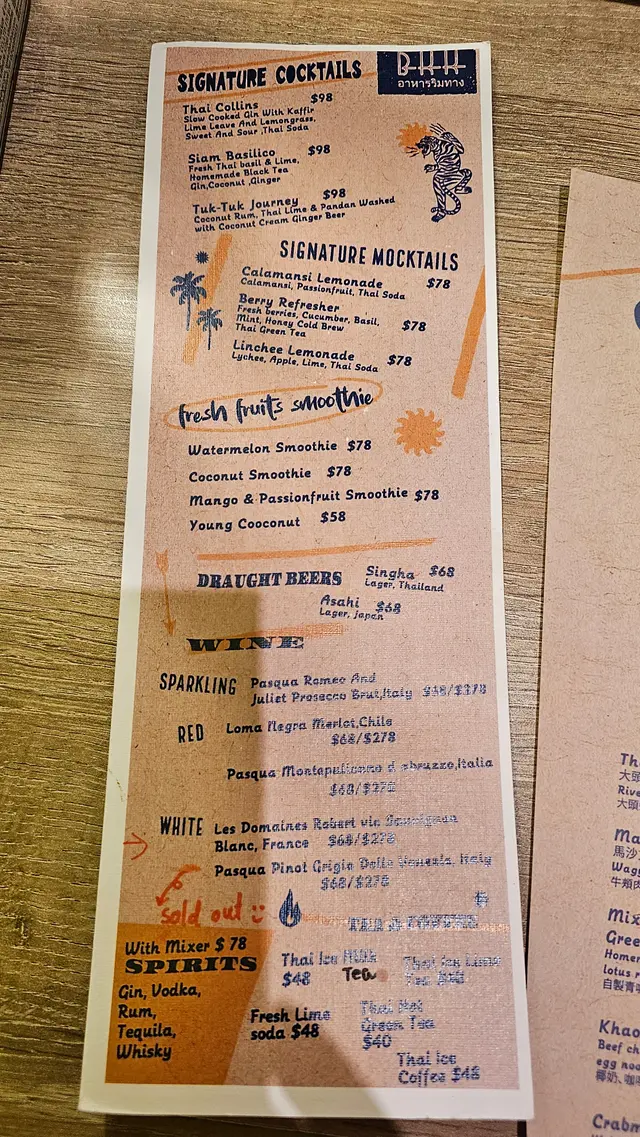 SIGNATURE COCKTAILS
BKK
อาหารริมทาง
Thai Collins $98
Slow Cooked Gin With Kaffir
Lime Leave And Lemongrass,
Sweet And Sour ,Thai Soda
Siam Basilico $98
Fresh Thai basil & Lime,
Homemade Black Tea
Gin,Coconut ,Ginger
Tuk-Tuk Journey $98
Coconut Rum, Thai Lime & Pandan Washed
with Coconut Cream Ginger Beer
SIGNATURE MOCKTAILS
Calamansi Lemonade $78
Calamansi, Passionfruit, Thai Soda
Berry Refresher
Fresh berries, Cucumber, Basil,
Mint, Honey Cold Brew $78
Thai Green Tea
Linchee Lemonade $78
Lychee, Apple, Lime, Thai Soda
fresh fruits smoothie
Watermelon Smoothie $78
Coconut Smoothie $78
Mango & Passionfruit Smoothie $78
Young Cooconut $58
DRAUGHT BEERS
Singha $68
Lager, Thailand
Asahi $68
Lager, japan
WINE
SPARKLING
Pasqua Romeo And
Juliet Prosecco Brut,Italy /$278
RED
Loma Negra Merlot,Chile
$68/$278
Pasqua Montepulciano d abruzzo,Italia
$68/$278
WHITE
Les Domaines Robert vic Sauvignan
Blanc, France $68/$278
Pasqua Pinot Grigio Delle Venezia, Italy
$68/$278
sold out
TEA & COFFEE
With Mixer $ 78
SPIRITS
Gin, Vodka,
Rum,
Tequila,
Whisky
Thai Ice Milk
$48 Tea
Thai Ice Lime
Tea
Fresh Lime
soda $48
Thai Hot
Green Tea
$40
Thai Ice
Coffee $48
大頭
Rive
大頭
馬沙
牛頰肉
Mix
Gree
lotus r
自製青
Khao
Beef ch
egg noo
椰奶、咖
Crabm